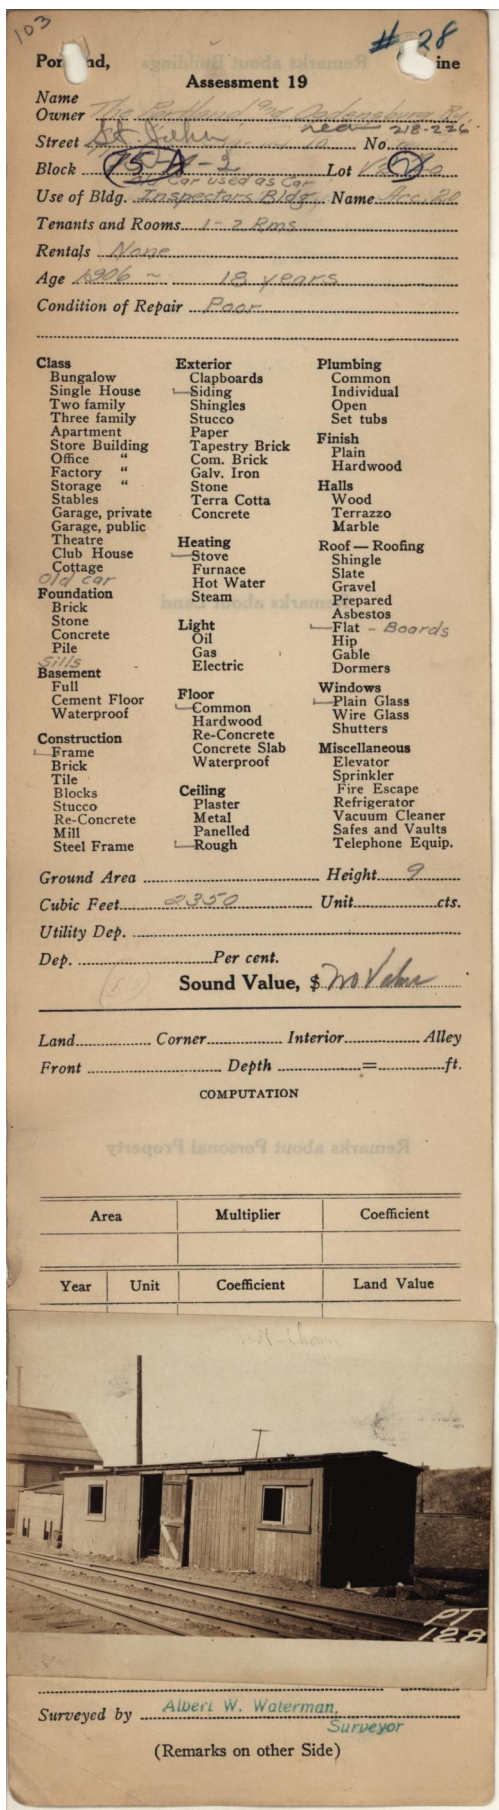 103
# 28
Portland, Maine
Assessment 19
Name
Owner The Portland and Ogdensburg Ry.
Street St. John near 218-226 No.
Block 75-A-2 Lot
Car used as Car
Use of Bldg. Inspectors Bldg. Name Acc. 20
Tenants and Rooms 1-2 Rms
Rentals None
Age 1906 ~ 18 years
Condition of Repair Poor
Class
Bungalow
Single House
Two family
Three family
Apartment
Store Building
Office "
Factory "
Storage "
Stables
Garage, private
Garage, public
Theatre
Club House
Cottage
Old car
Foundation
Brick
Stone
Concrete
Pile
Sills
Basement
Full
Cement Floor
Waterproof
Construction
Frame
Brick
Tile
Blocks
Stucco
Re-Concrete
Mill
Steel Frame
Exterior
Clapboards
Siding
Shingles
Stucco
Paper
Tapestry Brick
Com. Brick
Galv. Iron
Stone
Terra Cotta
Concrete
Heating
Stove
Furnace
Hot Water
Steam
Light
Oil
Gas
Electric
Floor
Common
Hardwood
Re-Concrete
Concrete Slab
Waterproof
Ceiling
Plaster
Metal
Panelled
Rough
Plumbing
Common
Individual
Open
Set tubs
Finish
Plain
Hardwood
Halls
Wood
Terrazzo
Marble
Roof — Roofing
Shingle
Slate
Gravel
Prepared
Asbestos
Flat - Boards
Hip
Gable
Dormers
Windows
Plain Glass
Wire Glass
Shutters
Miscellaneous
Elevator
Sprinkler
Fire Escape
Refrigerator
Vacuum Cleaner
Safes and Vaults
Telephone Equip.
Ground Area Height 9
Cubic Feet 2350 Unit cts.
Utility Dep.
Dep. Per cent.
Sound Value, $ no Value
Land Corner Interior Alley
Front Depth = ft.
COMPUTATION
Area Multiplier Coefficient
Year Unit Coefficient Land Value
PT
128
Surveyed by Albert W. Waterman,
Surveyor
(Remarks on other Side)